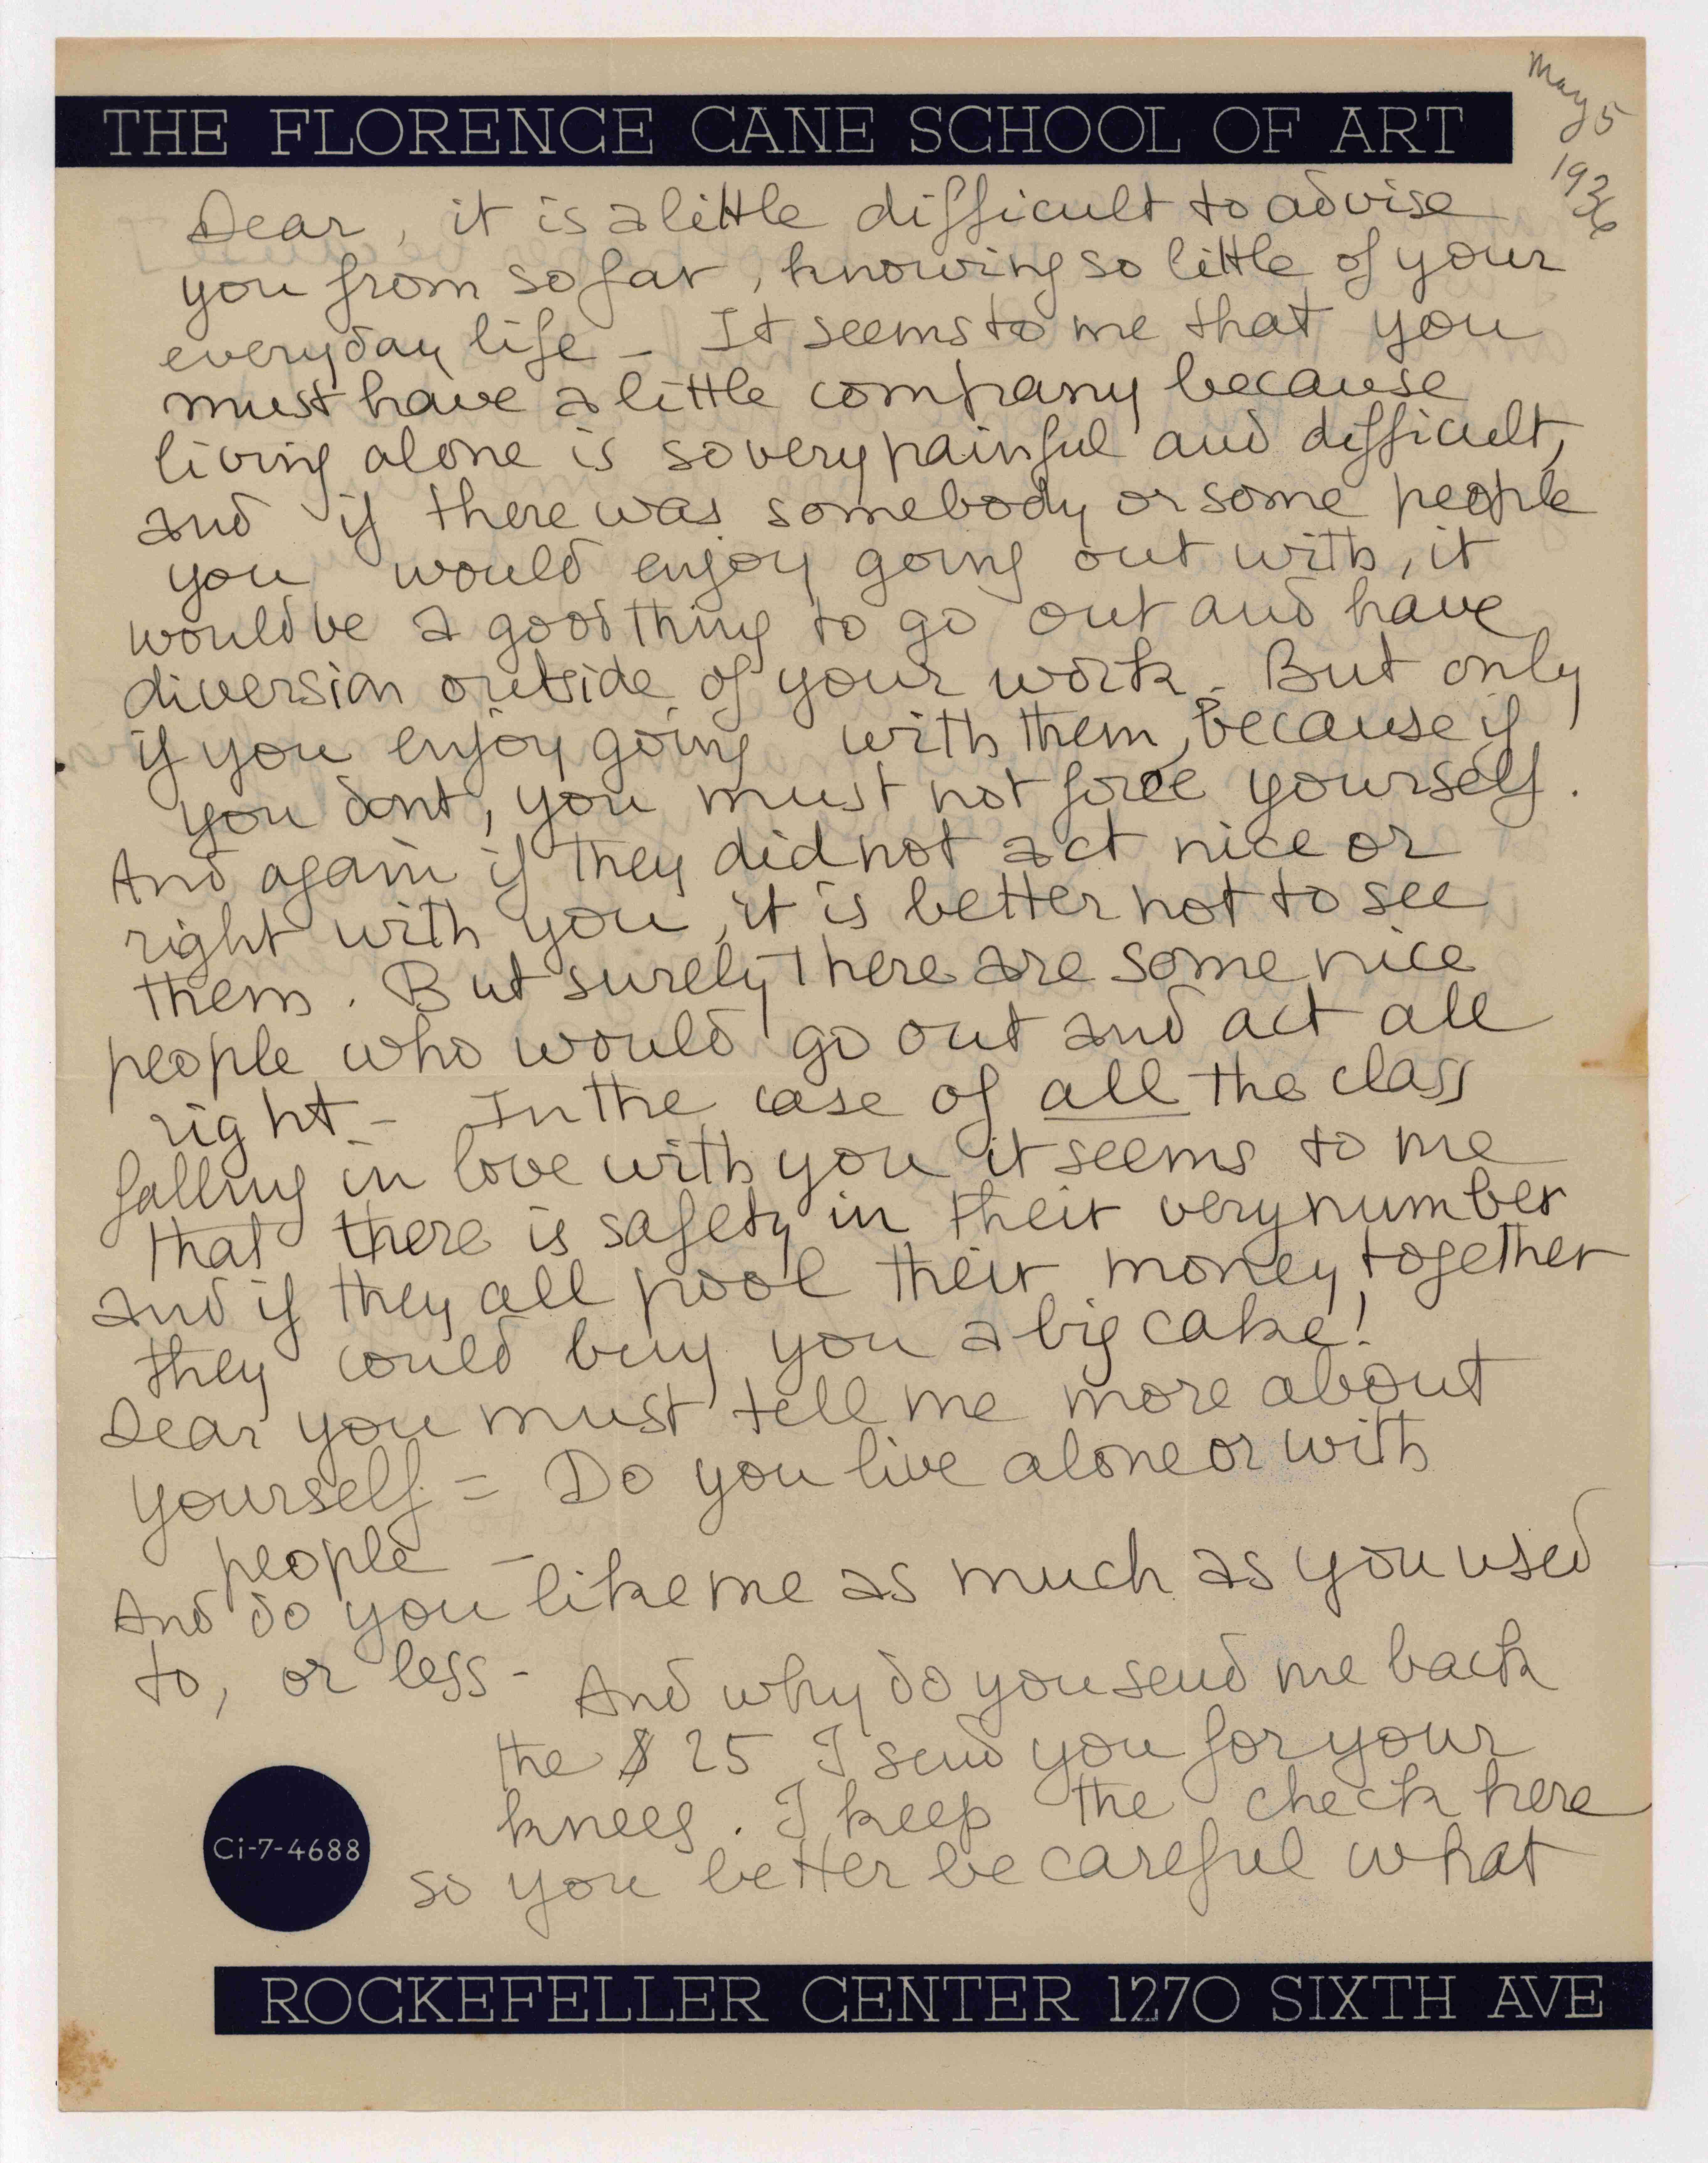 May 5
1936
THE FLORENCE CANE SCHOOL OF ART
Dear, it is a little difficult to advise
you from so far, knowing so little of your
everyday life - It seems to me that you
must have a little company because
living alone is so very painful and difficult,
and if there was somebody or some people
you would enjoy going out with, it
would be a good thing to go out and have
diversion outside of your work. But only
if you enjoy going with them, because if
you dont, you must not force yourself.
And again if they did not act nice or
right with you, it is better not to see
them. But surely there are some nice
people who would go out and act all
right - In the case of all the class
falling in love with you it seems to me
that there is safety in their very number
and if they all pool their money together
they could buy you a big cake!
Dear you must tell me more about
yourself = Do you live alone or with
people -
And do you like me as much as you used
to, or less - And why do you send me back
the $25 I send you for your
knees. I keep the check here
so you better be careful what
Ci-7-4688
ROCKEFELLER CENTER 1270 SIXTH AVE